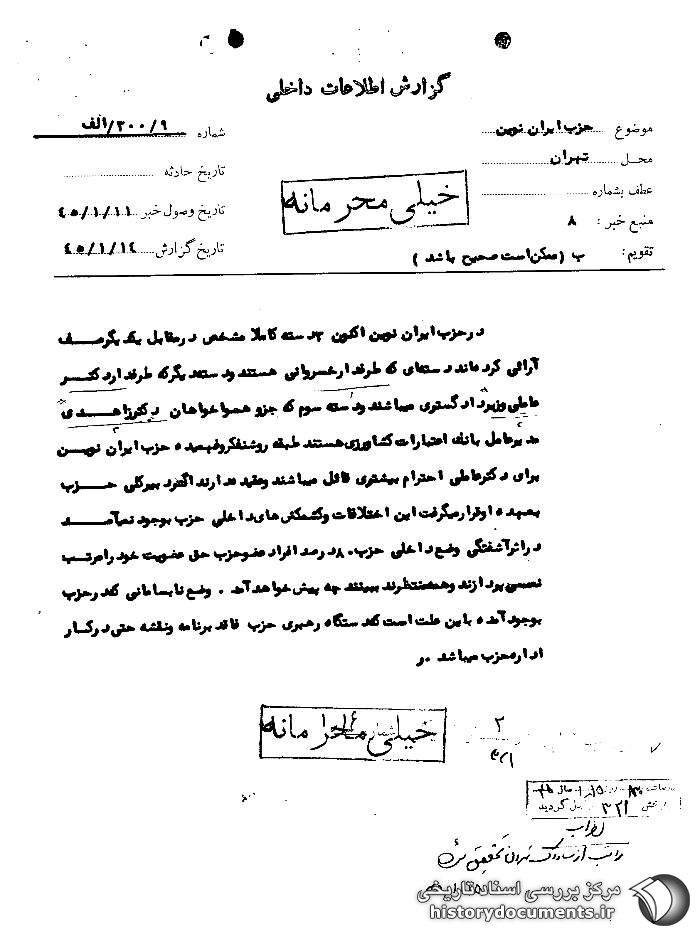 گزارش اطلاعات داخلی
موضوع حزب ایران نوین
شماره ۳۰۰/۹/الف
محل تهران
تاریخ حادثه
عطف بشماره
خیلی محرمانه
تاریخ وصول خبر ۴۵/۱/۱۱
منبع خبر : ۸
تاریخ گزارش ۴۵/۱/۱۴
تقویم: ب (ممکن است صحیح باشد)
در حزب ایران نوین اکنون ۳ دسته کاملا مشخص در مقابل یکدیگر صف
آرائی کرده‌اند دسته‌ای که طرفدار خسروانی هستند و دسته دیگر که طرفدار دکتر
عاملی وزیر دادگستری میباشند و دسته سوم که جزو هواخواهان دکتر زاهدی
مدیر عامل بانک اعتبارات کشاورزی هستند طبقه روشنفکر و فهمیده حزب ایران نوین
برای دکتر عاملی احترام بیشتری قائل میباشند و عقیده دارند اگر دبیر کلی حزب
بعهده او قرار میگرفت این اختلافات و کشمکش‌های داخلی حزب بوجود نمیآمد
در اثر آشفتگی وضع داخلی حزب ۸۰ درصد افراد عضو حزب حق عضویت خود را مرتب
نمی‌پردازند و همه منتظرند ببینند چه پیش خواهد آمد . وضع نابسامانی که در حزب
بوجود آمده باین علت است که دستگاه رهبری حزب فاقد برنامه و نقشه حتی در کار
اداره حزب میباشد . ر
خیلی محرمانه
۲
۳۲۱
۳۲۱
مرکز بررسی اسناد تاریخی
historydocuments.ir